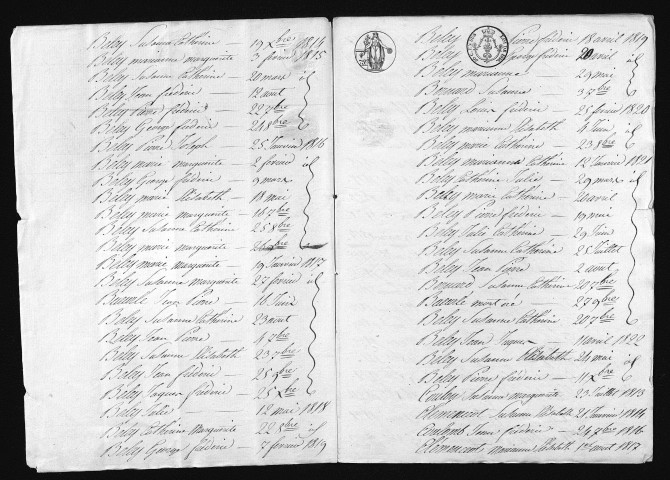 Beley Susanne Catherine — 19 Xbre 1814
Beley marianne marguerite — 3 fevrier 1815
Beley Susanne Catherine — 20 mars id
Beley Jean frederic — 12 avril
Beley Pierre frederic — 22 7bre
Beley George frederic — 24 8bre
Beley Pierre Joseph — 25 Janvier 1816
Beley marie marguerite — 2 fevrier id
Beley George frederic — 9 mars
Beley marie Elisabeth — 18 mai
Beley marie marguerite — 16 7bre
Beley Susanne Catherine — 25 8bre
Beley marie marguerite — bre
Beley marie marguerite — 19 Janvier 1817
Beley Susanne marguerite — 27 fevrier id
Pierre — 16 Juin
Beley Susanne Catherine — 23 aout
Beley Jean Pierre — 4 7bre
Beley Susanne Elisabeth — 23 7bre
Beley Jean frederic — 25 9bre
Beley Jaques frederic — 25 Xbre
Beley Julie — 12 mai 1818
Beley Catherine Marguerite — 22 8bre id
Beley George frederic — 7 fevrier 1819
Beley Pierre frederic 18 avril 1819
Beley George frederic 20 avril id
Beley marianne — 29 mai
Bonnard Susanne — 3 7bre
Beley Louis frederic — 25 fevrier 1820
Beley marianne Elisabeth 4 Juin id
Beley marie Catherine — 23 8bre
Beley marianne Catherine 12 Janvier 1821
Beley Catherine Julie — 29 mars id
Beley marie Catherine — 20 avril
Beley Pierre frederic — 19 mai
Beley Julie Catherine — 29 Juin
Beley Susanne Catherine — 25 Juillet
Beley Jean Pierre — 2 aout
Bonnard Susanne Catherine 20 7bre
mort né — 27 9bre
Beley Susanne Catherine — 20 7bre
Beley Jean — 11 avril 1822
Beley Susanne Elisabeth — 24 mai id
Beley Pierre frederic — 11 Xbre
Susanne marguerite — 23 Juillet 1813
Clémencet Susanne Elisabeth 21 Janvier 1814
Jean frederic — 24 7bre 1816
Clémencet Marianne Elisabeth 1er avril 1817